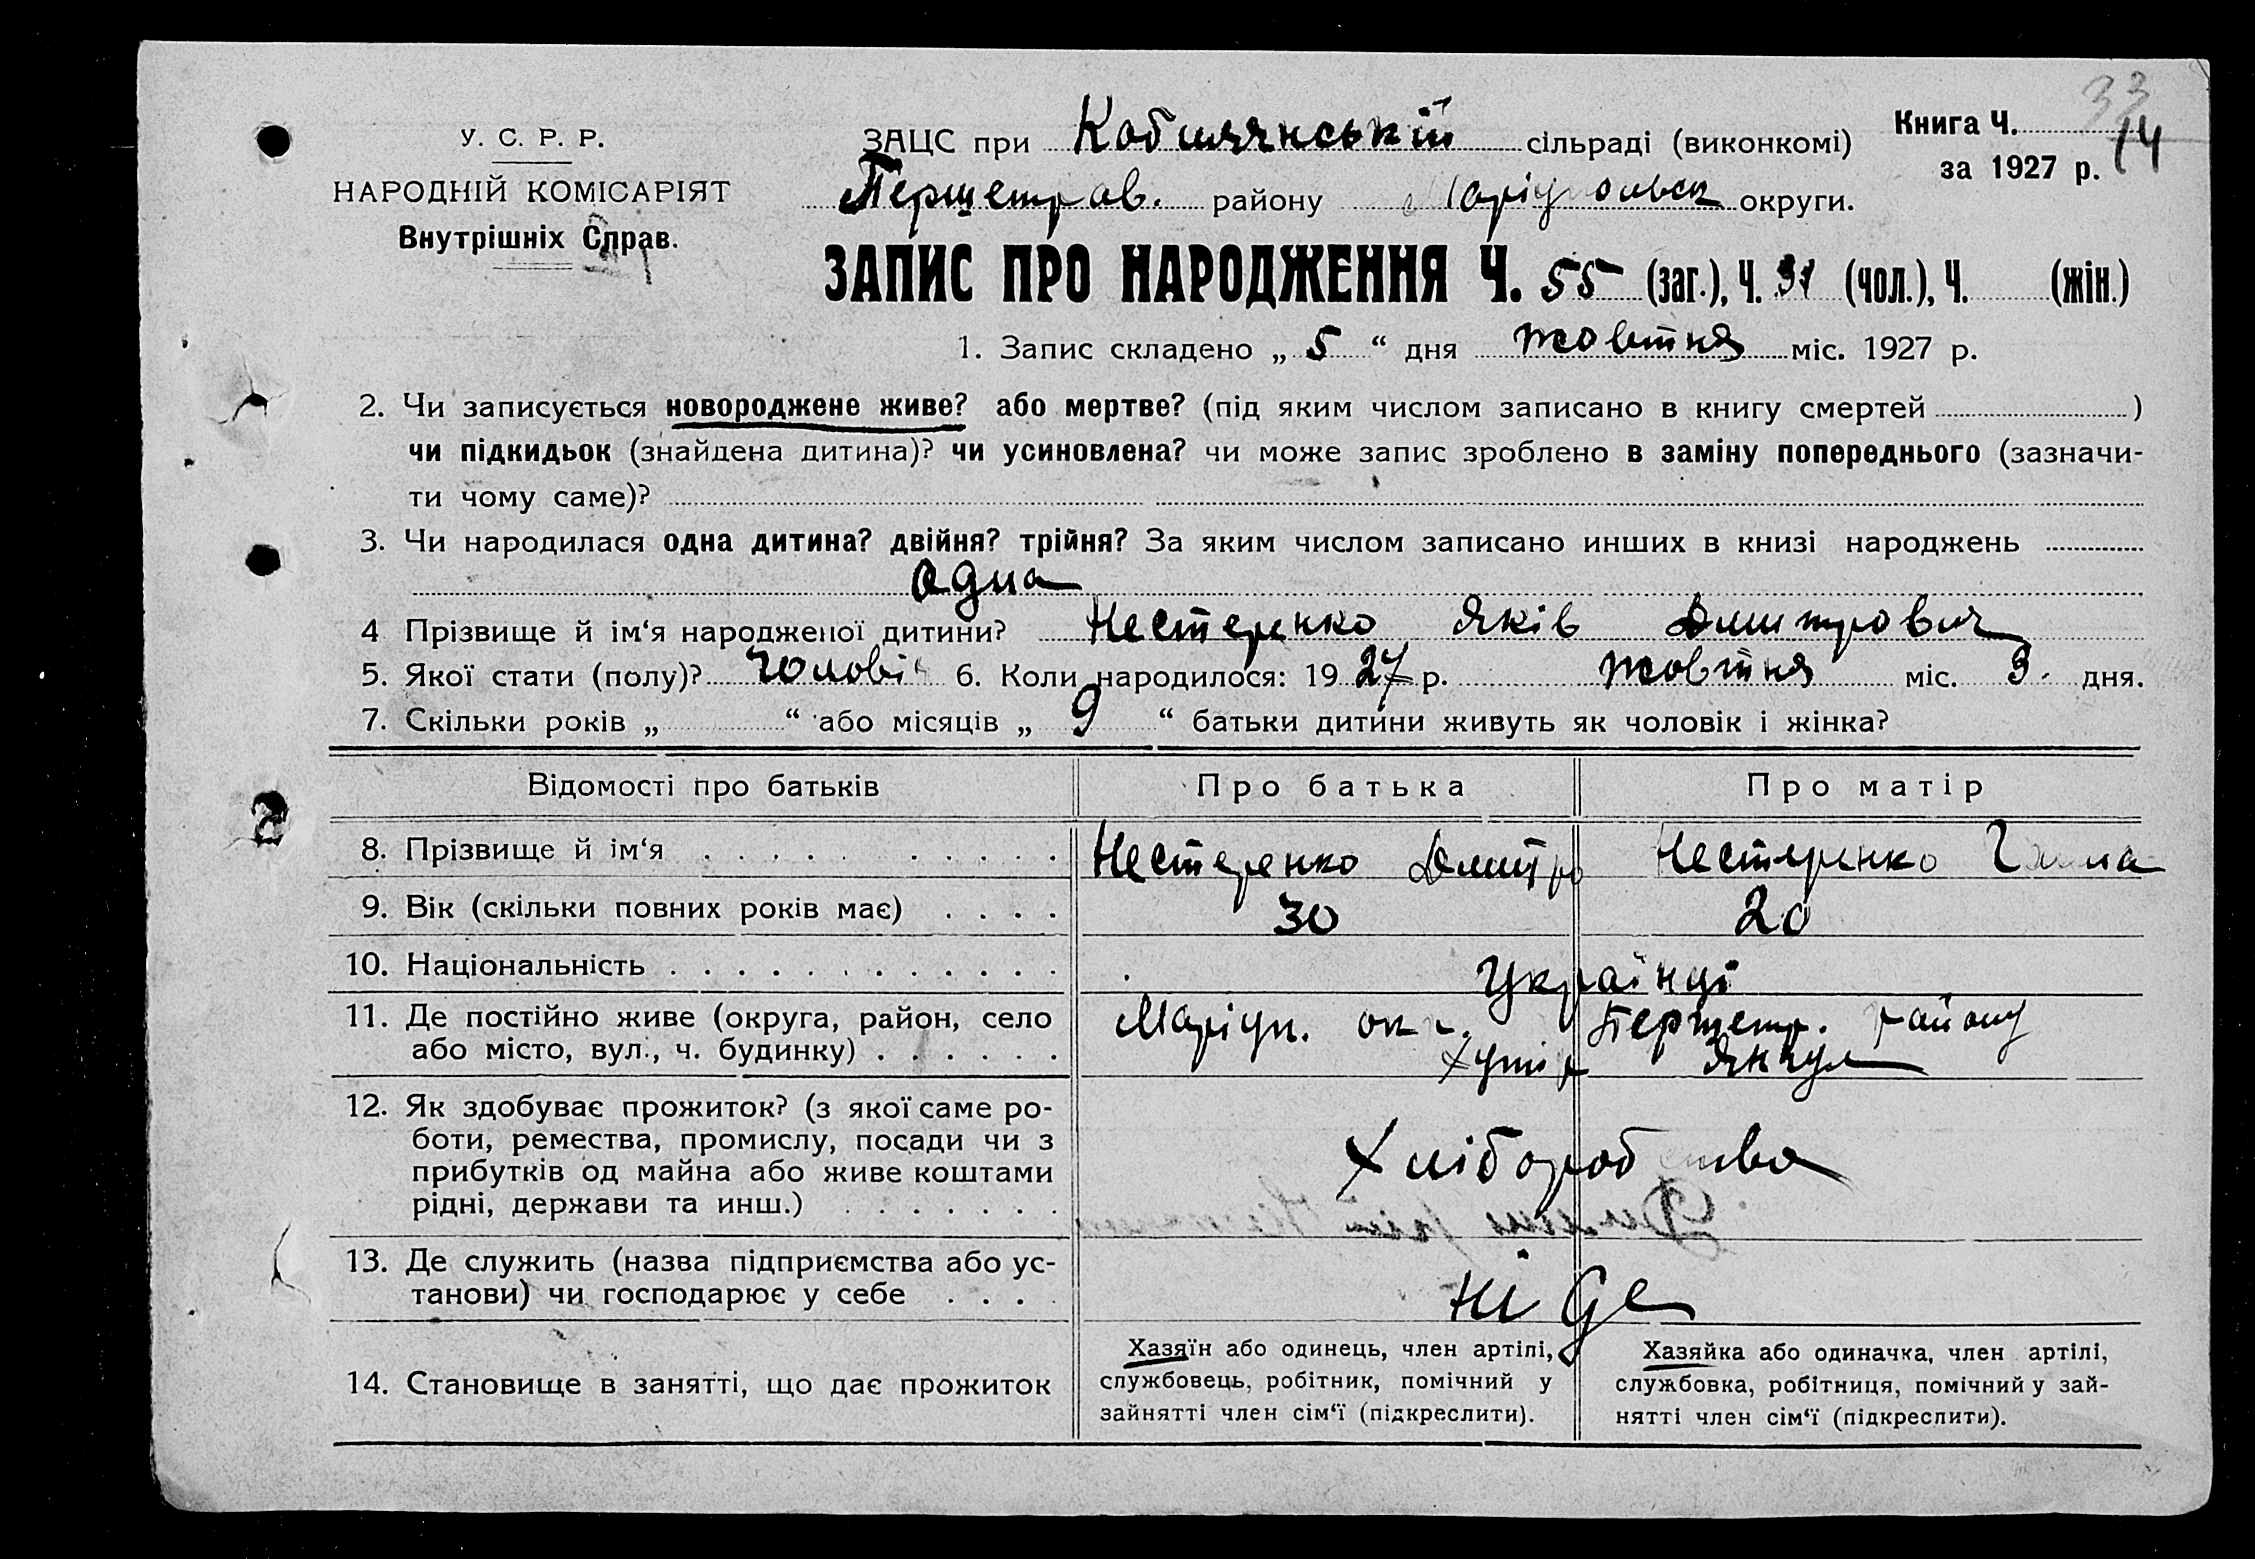 33
14
У. С. Р. Р.
НАРОДНІЙ КОМІСАРІЯТ
Внутрішніх Справ.
ЗАЦС при Кобилянській сільраді (виконкомі)
Першетрав. району Маріупольск округи.
Книга Ч.
за 1927 р.
ЗАПИС ПРО НАРОДЖЕННЯ Ч. 55 (заг.), Ч. 31 (чол.), Ч. (жін.)
1. Запис складено „ 5 “ дня жовтня міс. 1927 р.
2. Чи записується новороджене живе? або мертве? (під яким числом записано в книгу смертей )
чи підкидьок (знайдена дитина)? чи усиновлена? чи може запис зроблено в заміну попереднього (зазначи-
ти чому саме)?
3. Чи народилася одна дитина? двійня? трійня? За яким числом записано инших в книзі народжень
одна
4 Прізвище й ім‘я народженої дитини? Нестеренко Яків Дмитрович
5. Якої стати (полу)? чоловіч 6. Коли народилося: 1927 р. жовтня міс. 3. дня.
7. Скільки років „ “ або місяців „ 9 “ батьки дитини живуть як чоловік і жінка?
Відомості про батьків Про батька Про матір
8. Прізвище й ім‘я Нестеренко Дмитро Нестеренко Ганна
9. Вік (скільки повних років має) 30 20
10. Національність Українці
11. Де постійно живе (округа, район, село Маріуп. окр. Першетр. району
або місто, вул., ч. будинку) Хутір Янкул
12. Як здобуває прожиток? (з якої саме ро-
боти, ремества, промислу, посади чи з
прибутків од майна або живе коштами
рідні, держави та инш.) Хліборобства
13. Де служить (назва підприємства або ус-
танови) чи господарює у себе Ні де
14. Становище в занятті, що дає прожиток
Хазяїн або одинець, член артілі,
службовець, робітник, помічний у
зайнятті член сім‘ї (підкреслити).
Хазяйка або одиначка, член артілі,
службовка, робітниця, помічний у зай-
нятті член сім‘ї (підкреслити).